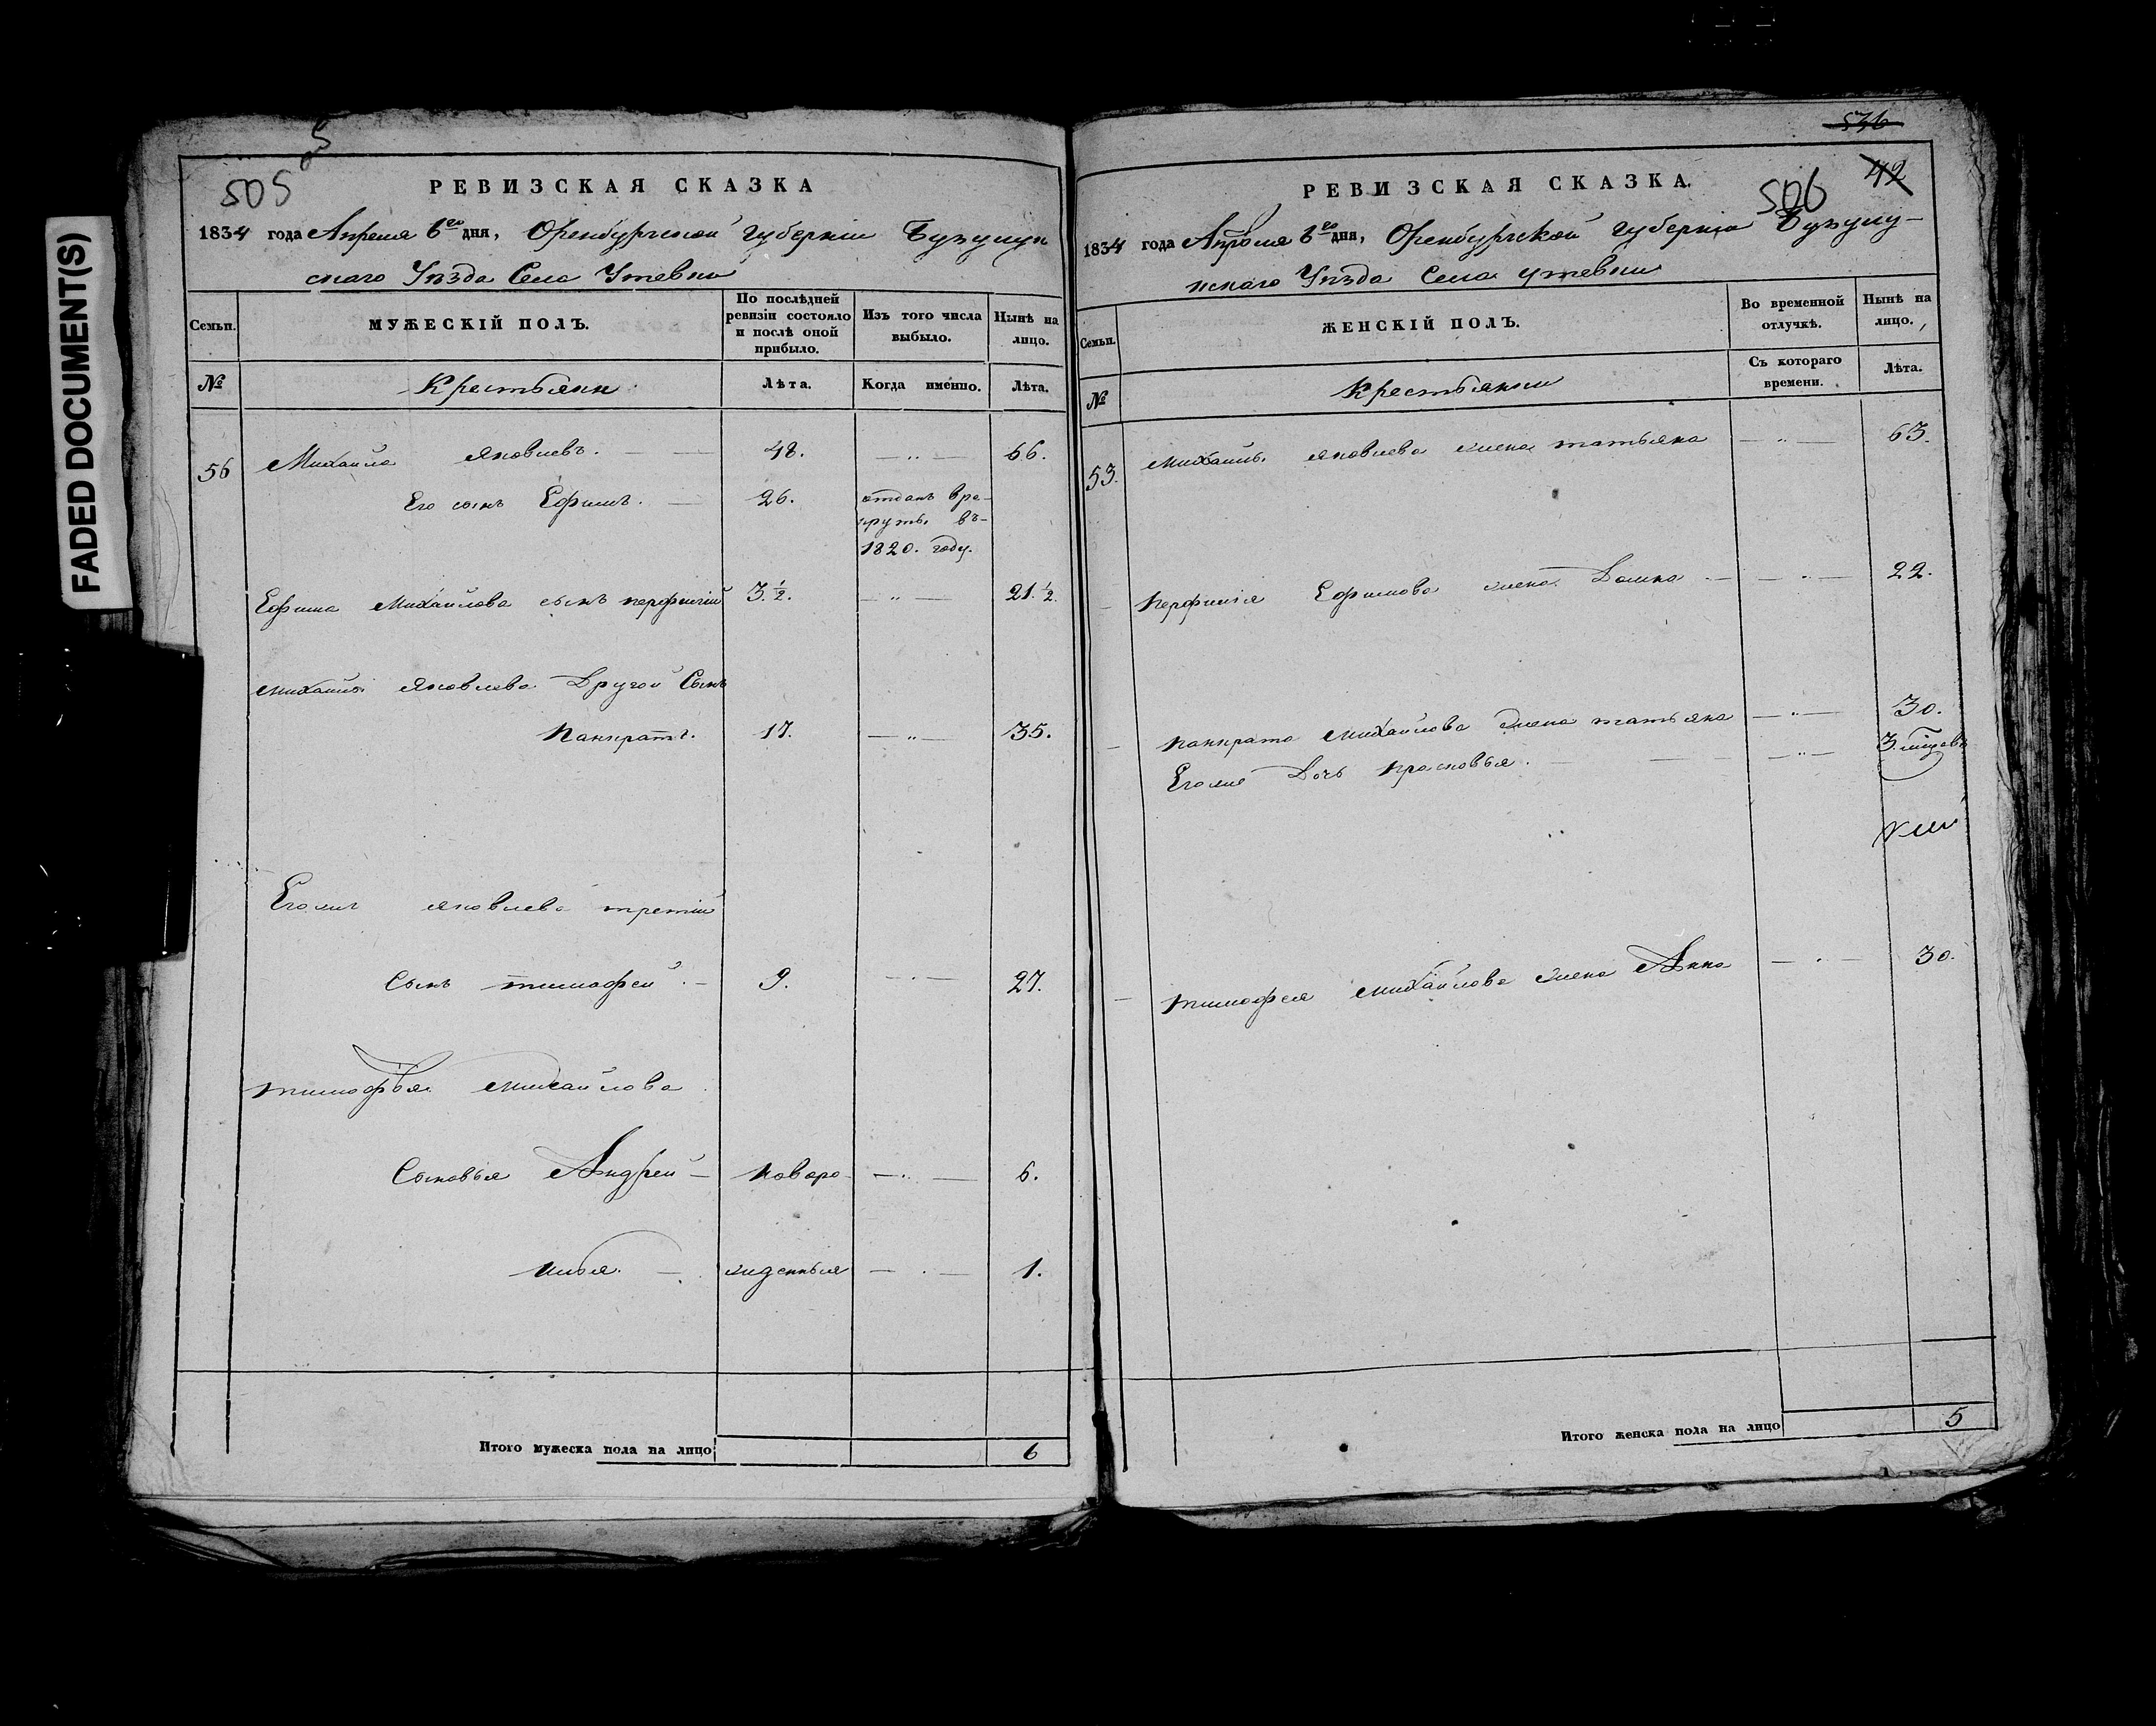 FADED DOCUMENT(S)
505
РЕВИЗСКАЯ СКАЗКА
1834 года Апреля 6го дня, Оренбургской губернiи Бузулук
скаго Уѣзда Села Утевки
Семьи.
МУЖЕСКІЙ ПОЛЪ.
По послѣдней ревизіи состояло и послѣ оной прибыло.
Изъ того числа выбыло.
Нынѣ на лицо.
№
Крестьяни
Лѣта.
Когда именно.
Лѣта.
56 Михаила Яковлевъ. 48. 66.
Его сынъ Ефимъ. 26. отданъ вре-
круты въ-
1820. году.
Ефима Михайлова сынъ перфилiй 3.½. 21.½.
Михайлы Яковлева Другой Сынъ
Панкратъ. 17. 35.
Егожъ яковлева третiй
Сынъ тимофей. 9. 27.
тимофѣя Михайлова
Сыновья Андрей новоро 6.
илья. жденныя 1.
Итого мужеска пола на лицо 6
536
506 42
РЕВИЗСКАЯ СКАЗКА.
1834 года Апрѣля 6го дня, Оренбургской губернiи Бузулу-
кскаго Уѣзда Села утевки
Семьи.
ЖЕНСКІЙ ПОЛЪ.
Во временной отлучкѣ.
Нынѣ на лицо.
№
Крестьянки
Съ котораго времени.
Лѣта.
53. Михайлы яковлева жена татьяна 63.
Перфилiя Ефимова жена Домна 22.
панкрата Михайлова жена татьяна 30.
Егоже Дочь прасковья. 3. мѣсяц.
тимофея михайлова жена Анна 30.
Итого женска пола на лицо 5